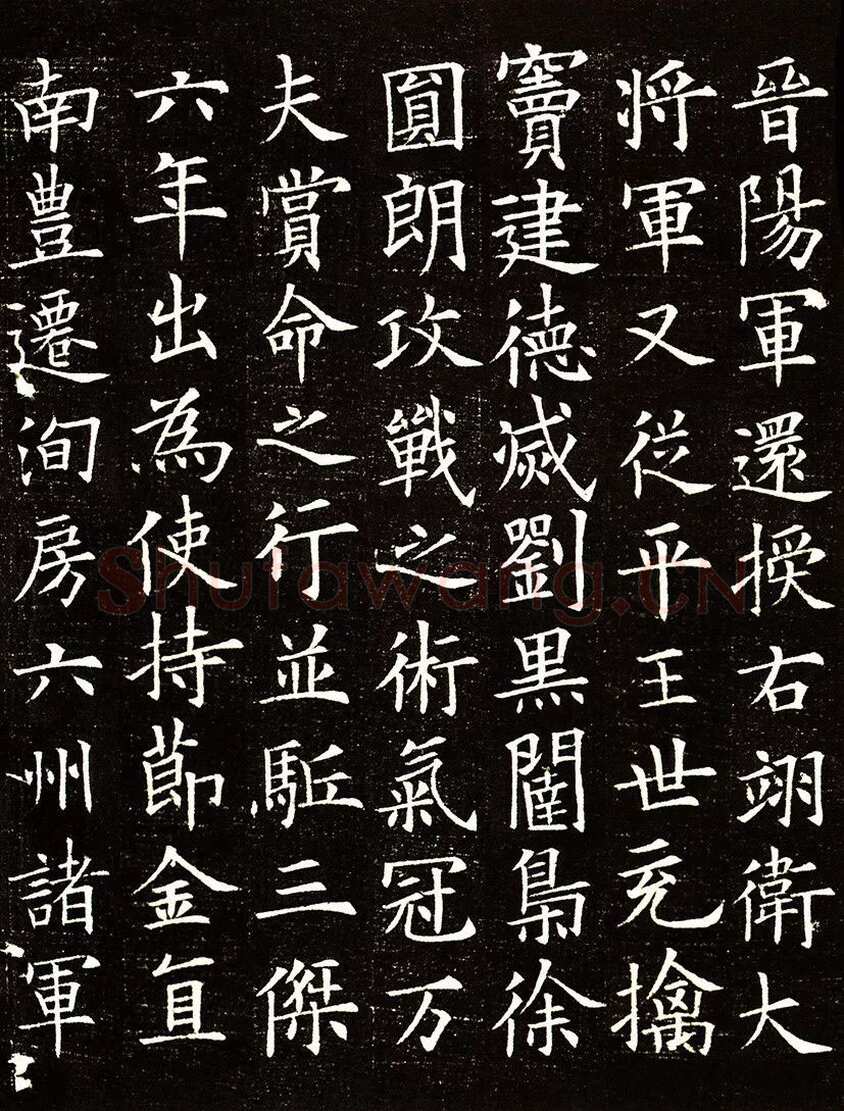 晉陽軍還授右翊衛大
将軍又從平王世充擒
竇建德滅劉黒闥梟徐
圓朗攻戰之術氣冠万
夫賞命之行並駈三傑
六年出為使持莭金直
南豊遷洵房六州諸軍
Shufawang.CN